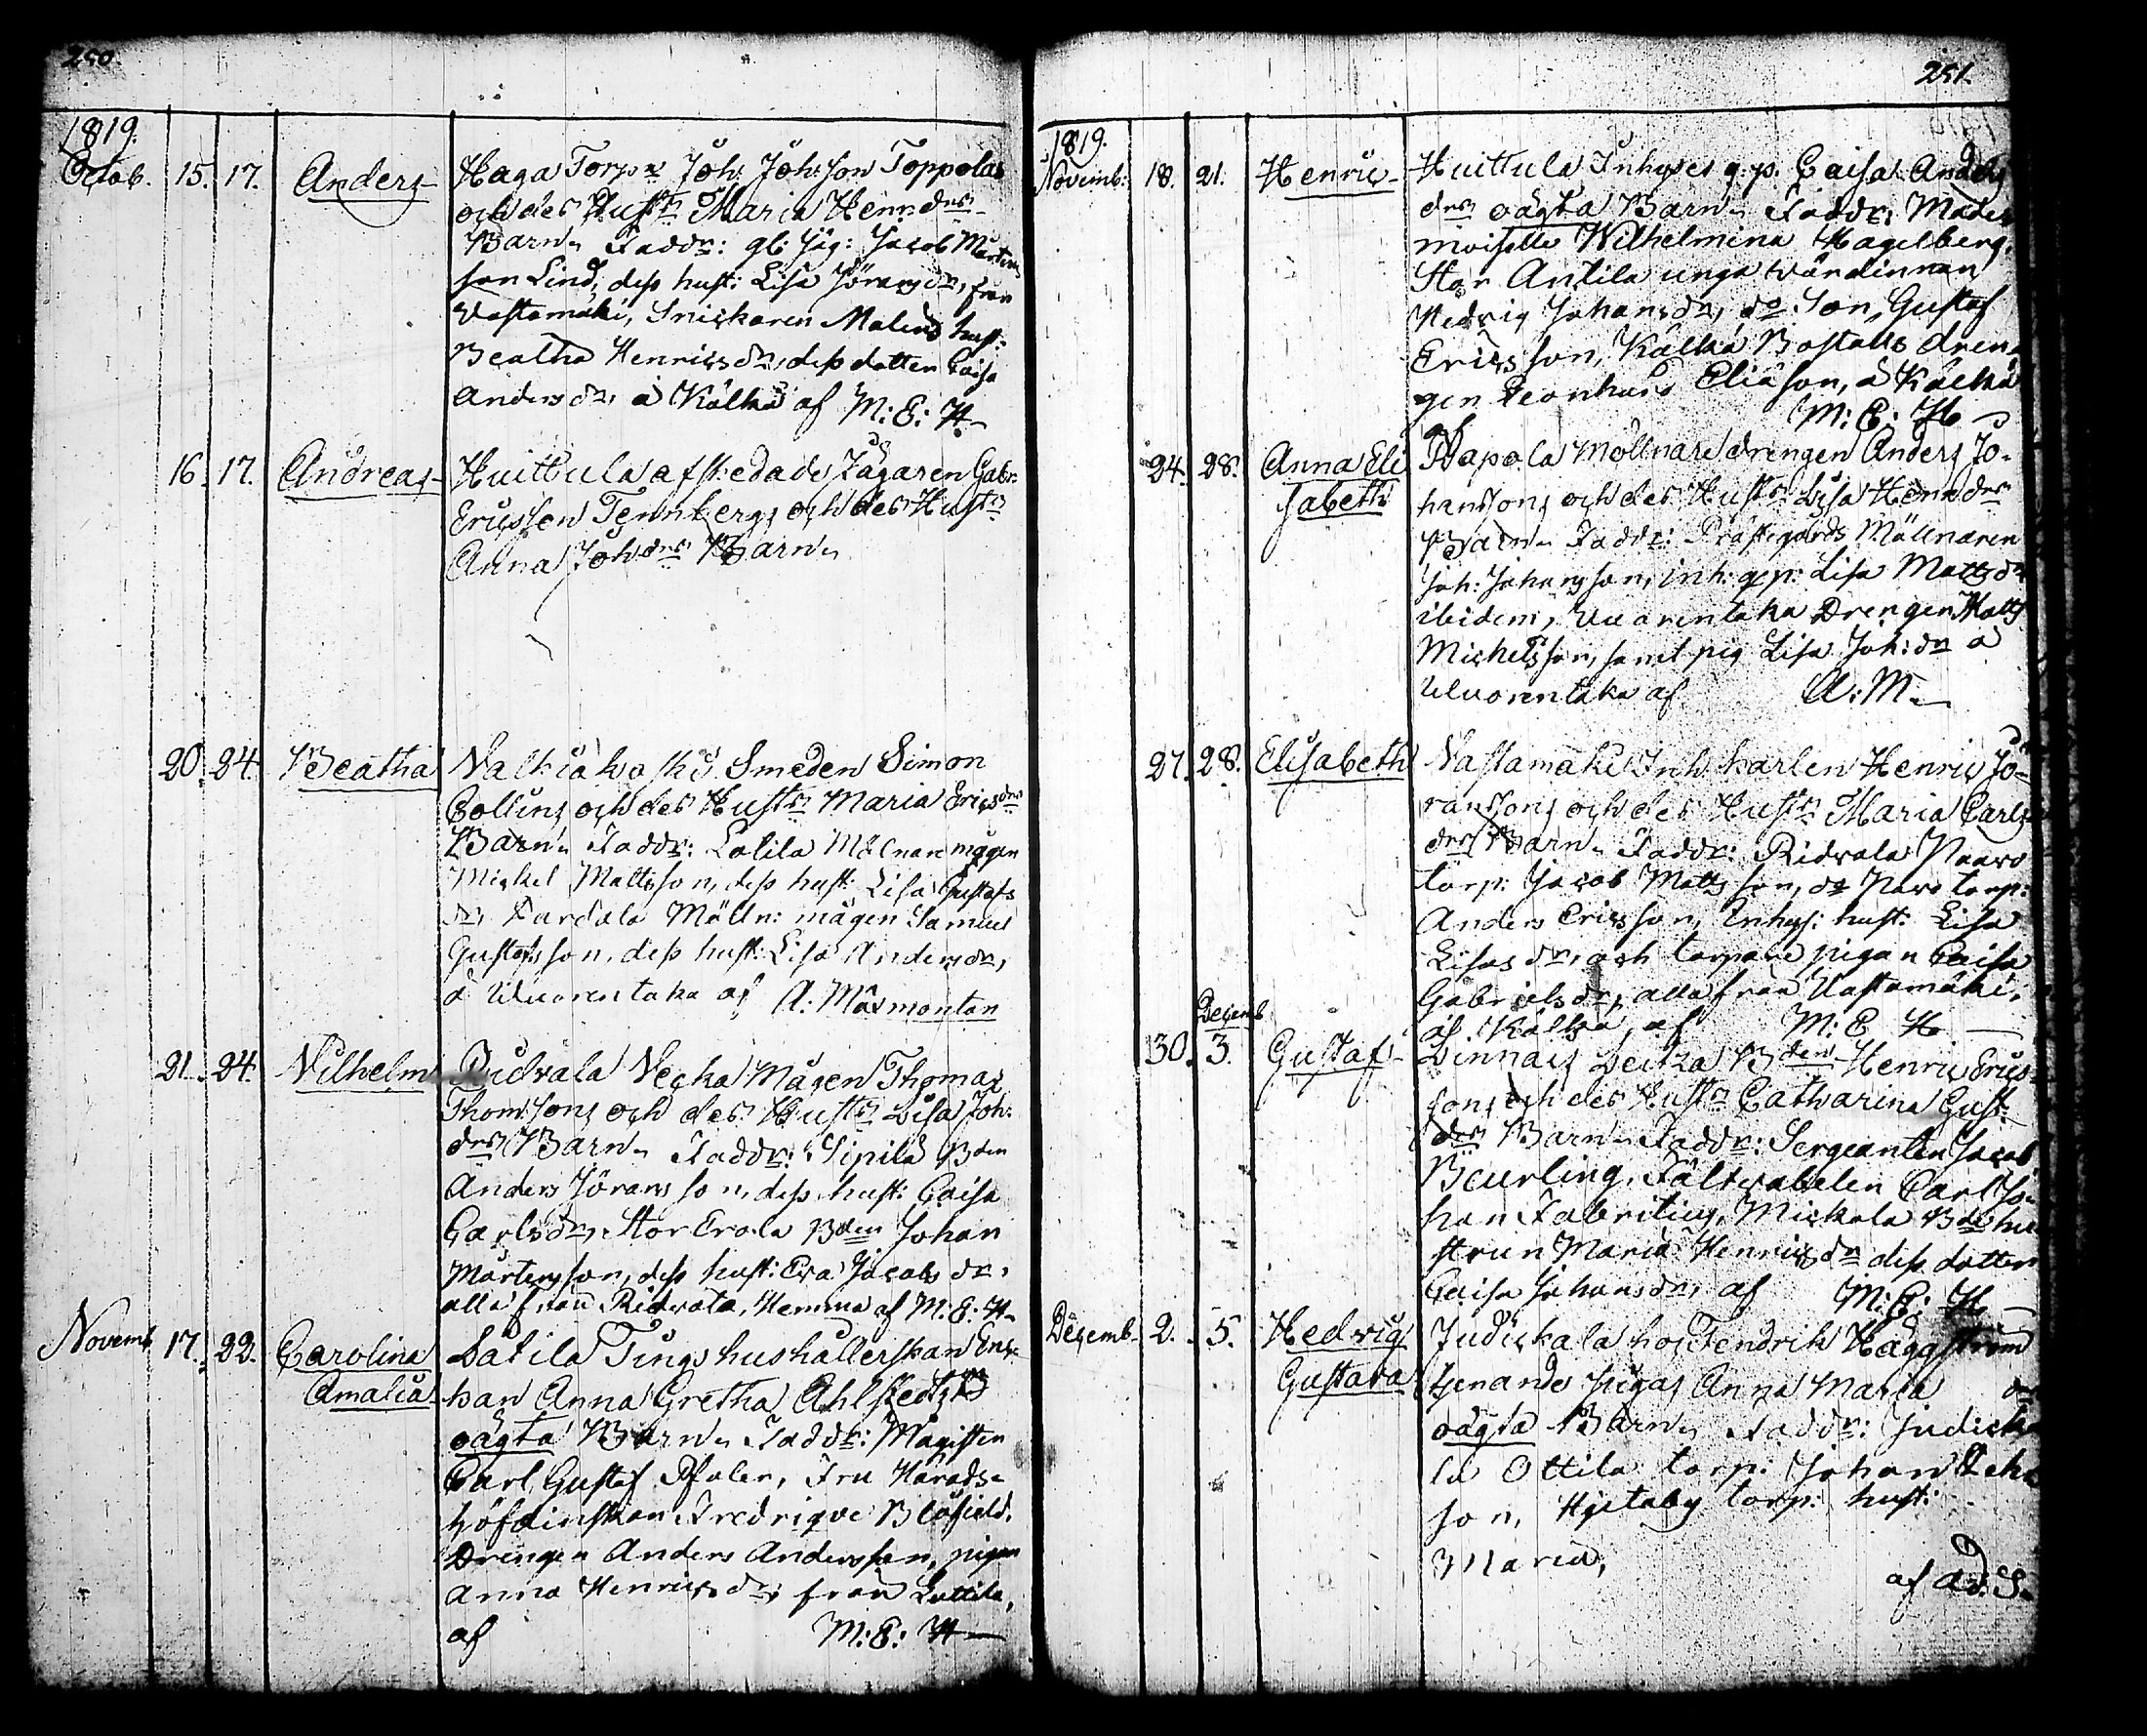 250.
1819.
Octob. 15. 17. Anders Haga Torp: Joh: Johsson Toppolas
och des Hust: Maria Henr:dr
Barn. Faddr: gl: Jäg: Jacob Mårtens
son Lind, dess hust: Lisa Jöransdr, från
Vastamäki, Snickaren Malens hust:
Beatha Henricsdr, dess dotter Caisa
Andersdr, à Kälkä af M: E: H
16. 17. Andreas Huittula afskedade Jägaren Gabr:
Ericsson Tennbergs och des Hust:
Anna Joh:dr Barn
20. 24. Beatha Valkiakoski Smeden Simon
Collins och des Hust: Maria Ericsdr
Barn. Faddr: Lotila Mölnare mågen
Michel Mattsson, dess hust: Lisa Gustafs
dr, Mölln: mågen Samuel
Gustafsson, dess hust: Lisa Andersdr,
à Uluorentaka af A: Malmontan
21. 24. Vilhelm Ridvala Mågen Thomas
Thomssons och des Hust: Lisa Joh:
dr Barn. Faddr: Sipilä Bden
Anders Jöransson, dess hust: Caisa
Carlsdr, Stor Erola Bden Johan
Mårtensson, dess hust: Eva Jacobsdr,
alla från Ridvala, Hemma af M: E: H
Novemb. 17. 22. Carolina Satila Tings hushållerskan Enk-
Amalia kan Anna Gretha Ahlstedts
oägta Barn. Faddr: Magister
Carl Gustaf Fru Härads-
höfdinskan Fredrique Blåfield,
Drengen Anders Andersson, pigan
Anna Henricsdr, från Luttila,
af M: E: H
251.
1819.
Novemb: 18. 21. Henric Huittula Inhyses q: p. Caisa Anders
dr oägta Barn. Faddr: Made
moiselle Wilhelmina Hagelberg,
Stor Antila unga värdinnan
Hedvig Johansdr, do: Son, Gustaf
Ericsson, Kälkä Boställs dren
gen Leonhard Eliasson, à Kälkä
af M: E: H
24. 28. Anna Eli Rapola Möllnare drengen Anders Jo-
sabeth hanssons och des Hust: Lisa Henr:dr
Barn. Faddr: Prästegårds Möllnaren
Joh: Johansson, inh: q: p: Lisa Mattsdr
ibidem, Uluorentaka Drengen Matts
Michelsson, samt pig Lisa Joh:dr à
Uluorentaka af A: M.
27. 28. Elisabeth Vastamäki Inh: karlen Henric Jö-
ranssons och des Hust: Maria Carls
dr Barn. Faddr: Ridvala Paavo
torp: Jacob Mattsson, do Pavo torp:
Anders Ericsson, Inhys: hust: Lisa
Lisasdr, och torpare pigan Caisa
Gabrielsdr, alla från Vastamäki,
af Kälkä, af M: E H
Decemb
30. 3. Gustaf Linnais Bden Henric Erics-
sons och des Hust: Catharina Gust:
dr Barn. Faddr: Sergeanten Jacob
Beurling, Fältväbelen Carl Jo-
han Fabritius, Mickola Bde hu
strun Maria Henricsdr dess dotter
Caisa Johansdr, af M: E: H
Decemb. 2. 5. Hedvig Judickala hos Fendrik Häggström
Gustava tjenande pigas Anna Maria dr
oägta Barn. Faddr: Judicka
la Ottila torp: Johan
son, Hjetaby torp: hust:
Maria,
af Ad: S.